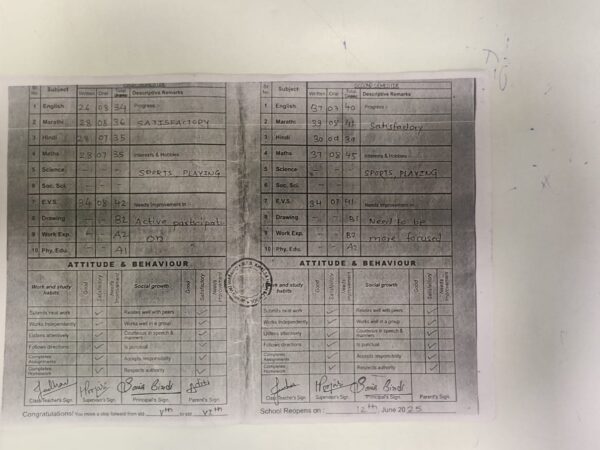 FIRST SEMESTER
Sr. No. Subject Written Oral Total Grade Descriptive Remarks
1 English 26 08 34 Progress :-
2 Marathi 28 08 36 SATISFACTORY
3 Hindi 28 07 35
4 Maths 28 07 35 Interests & Hobbies
5 Science - - - SPORTS, PLAYING
6 Soc. Sci. - - -
7 E.V.S. 34 08 42 Needs Improvement in :-
8 Drawing - - B2 Active participati
9 Work Exp. - - A2 on
10 Phy. Edu. - - A1
ATTITUDE & BEHAVIOUR
Work and study habits Good Satisfactory Needs Improvement Social growth Good Satisfactory Needs Improvement
Submits neat work ✓ Relates well with peers ✓
Works Independently ✓ Works well in a group ✓
Listens attentively ✓ Courteous in speech & manners ✓
Follows directions ✓ Is punctual ✓
Completes Assignments ✓ Accepts responsibility ✓
Completes Homework ✓ Respects authority ✓
Class Teacher's Sign. Supervisor's Sign. Principal's Sign. Parent's Sign.
Congratulations! You move a step forward from std Vth to std VIth
SECOND SEMESTER
Sr. No. Subject Written Oral Total Grade Descriptive Remarks
1 English 37 03 40 Progress :-
2 Marathi 39 08 Satisfactory
3 Hindi 30 09 39
4 Maths 37 08 45 Interests & Hobbies
5 Science - - SPORTS, PLAYING
6 Soc. Sci. - -
7 E.V.S. 34 07 41 Needs Improvement in :-
8 Drawing - B1 Need to be
9 Work Exp. - B2 more focused
10 Phy. Edu. A2
ATTITUDE & BEHAVIOUR
Work and study habits Good Satisfactory Needs Improvement Social growth Good Satisfactory Needs Improvement
Submits neat work ✓ Relates well with peers ✓
Works Independently ✓ Works well in a group ✓
Listens attentively ✓ Courteous in speech & manners ✓
Follows directions ✓ Is punctual ✓
Completes Assignments ✓ Accepts responsibility ✓
Completes Homework ✓ Respects authority ✓
Class Teacher's Sign. Supervisor's Sign. Principal's Sign. Parent's Sign.
School Reopens on : 12th June 2025